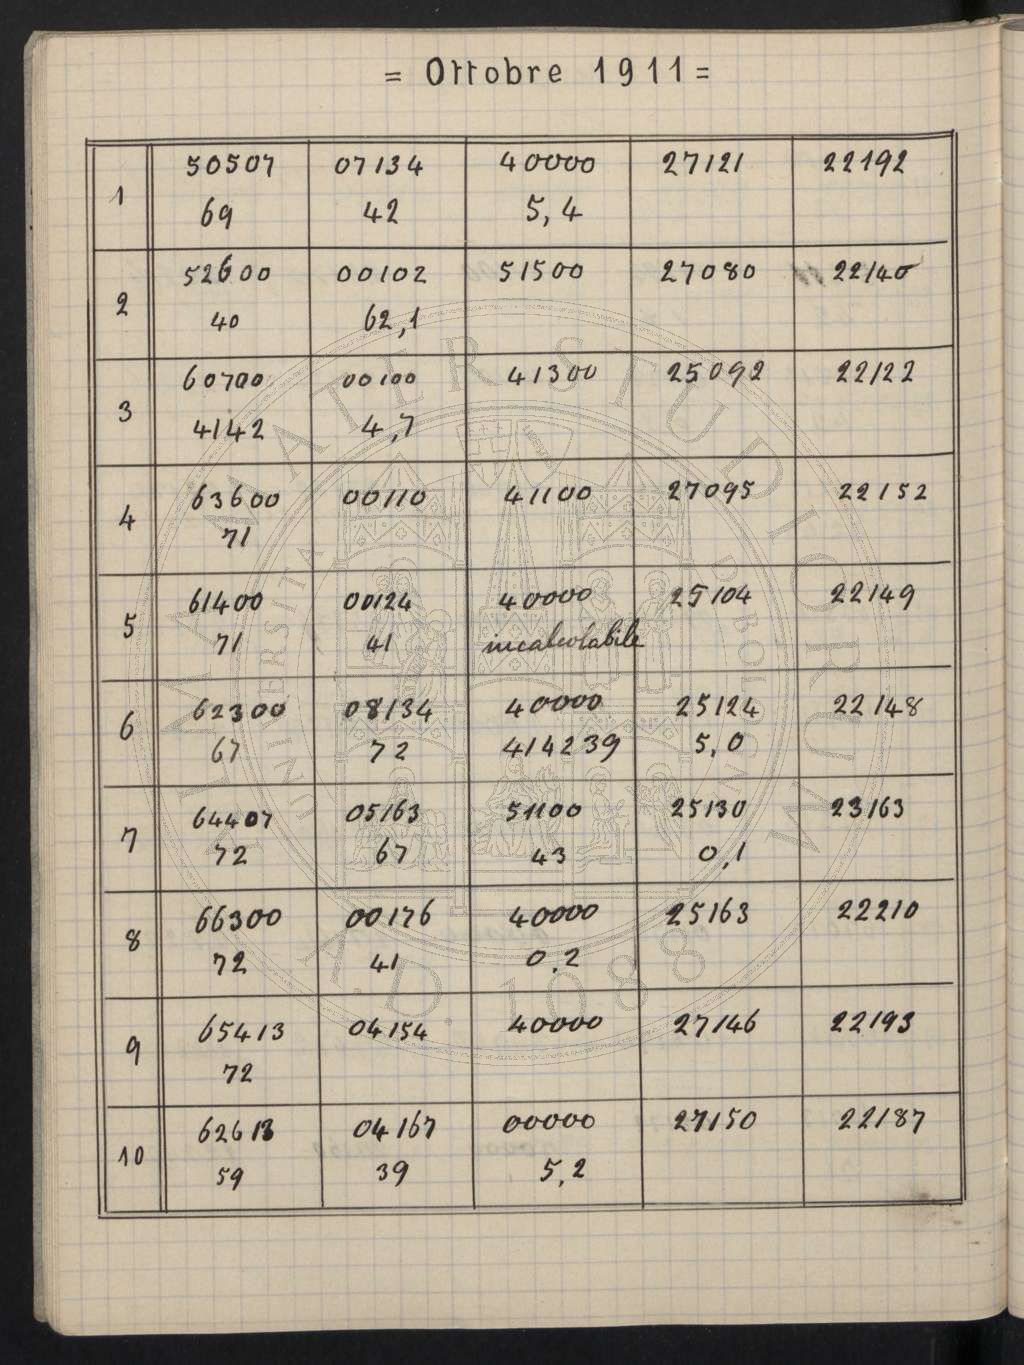 = Ottobre 1911 =
1 50507 07134 40000 27121 22192
69 42 5,4
2 52600 00102 51500 27080 22140
40 62,1
3 60700 00100 41300 25092 22122
4142 4,7
4 63600 00110 41100 27095 22152
71
5 61400 00124 40000 25104 22149
71 41 incalcolabile
6 62300 08134 40000 25124 22148
67 72 414239 5,0
7 64407 05163 51100 25130 23163
72 67 43 0,1
8 66300 00176 40000 25163 22210
72 41 0,2
9 65413 04154 40000 27146 22193
72
10 62613 04167 00000 27150 22187
59 39 5,2
ALMA MATER STUDIORUM
A.D. 1088